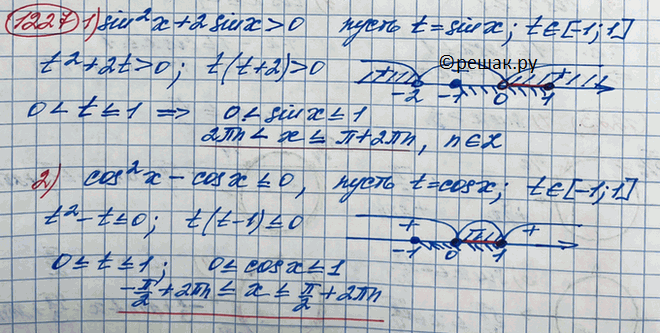 1227 1) sin²x + 2 sinx > 0 пусть t = sinx; t ∈ [-1; 1]
t² + 2t > 0; t(t+2) > 0
©решак.ру
+ +
-2 -1 0 1
0 < t ≤ 1 ⇒ 0 < sinx ≤ 1
2πn < x ≤ π + 2πn, n ∈ Z
2) cos²x - cosx ≤ 0, пусть t = cosx; t ∈ [-1; 1]
t² - t ≤ 0; t(t-1) ≤ 0
+ +
-1 0 1
0 ≤ t ≤ 1; 0 ≤ cosx ≤ 1
-π/2 + 2πn ≤ x ≤ π/2 + 2πn